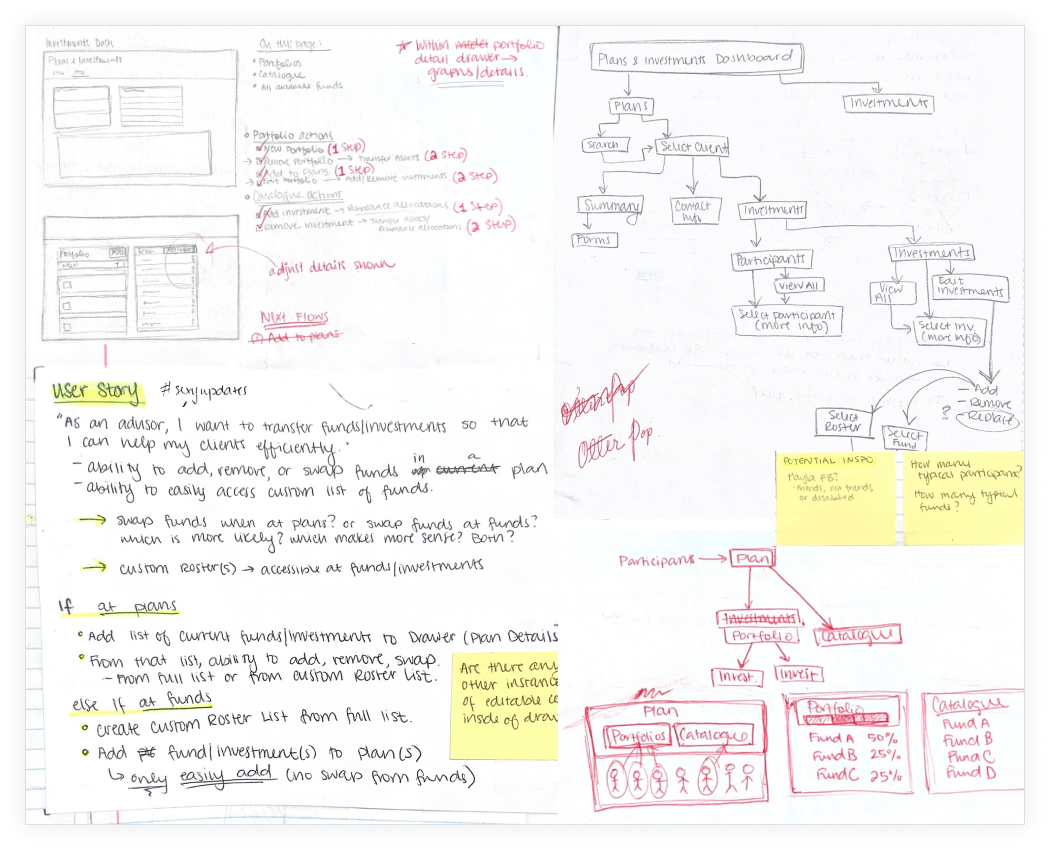 Investments Dash
Plans & Investments
On this page:
• Portfolios
• Catalogue
• All available funds
* Within model portfolio
detail drawer →
graphs/details.
Portfolio actions
New Portfolio (1 Step)
→ Remove Portfolio → Transfer Assets (2 Step)
Add to Plans (1 Step)
→ Edit Portfolio → Add/Remove investments (2 Step)
Catalogue actions
Add investment → Rebalance allocations (1 Step)
Remove investment → Transfer assets/
Rebalance allocations (2 Step)
Portfolio
adjust details shown
Next Flows
(1) Add to plans
User Story #songupdates
"As an advisor, I want to transfer funds/investments so that
I can help my clients efficiently."
- ability to add, remove, or swap funds in a current plan
- ability to easily access custom list of funds.
→ swap funds when at plans? or swap funds at funds?
which is more likely? which makes more sense? Both?
→ custom Roster(s) → accessible at funds/investments
If at plans
• Add list of current funds/investments to Drawer (Plan Details
• From that list, ability to add, remove, swap.
- From full list or from custom Roster List.
else if at funds
• create custom Roster List from full list.
• Add fund/investment(s) to plan(s)
↳ only easily add (no swap from funds)
Are there any
other instanc
of editable co
inside of draw
Plans & Investments Dashboard
Plans
Investments
Search
Select Client
Summary
Contact
Info
Investments
Forms
Participants
View All
Select participant
(more info)
Investments
View
All
Edit
Investments
Select Inv.
(more info)
- Add
- Remove
- Replace
?
Select
Roster
Select
Fund
Otter Pop
Otter Pop.
POTENTIAL INSPO
Maybe FB?
- Friends, not friends,
or disabled
How many
typical participants?
How many typical
funds?
Participants → Plan
Investments
Portfolio
Catalogue
Invest.
Invest
Plan
Portfolios
Catalogue
Portfolio
Fund A 50%
Fund B 25%
Fund C 25%
Catalogue
Fund A
Fund B
Fund C
Fund D